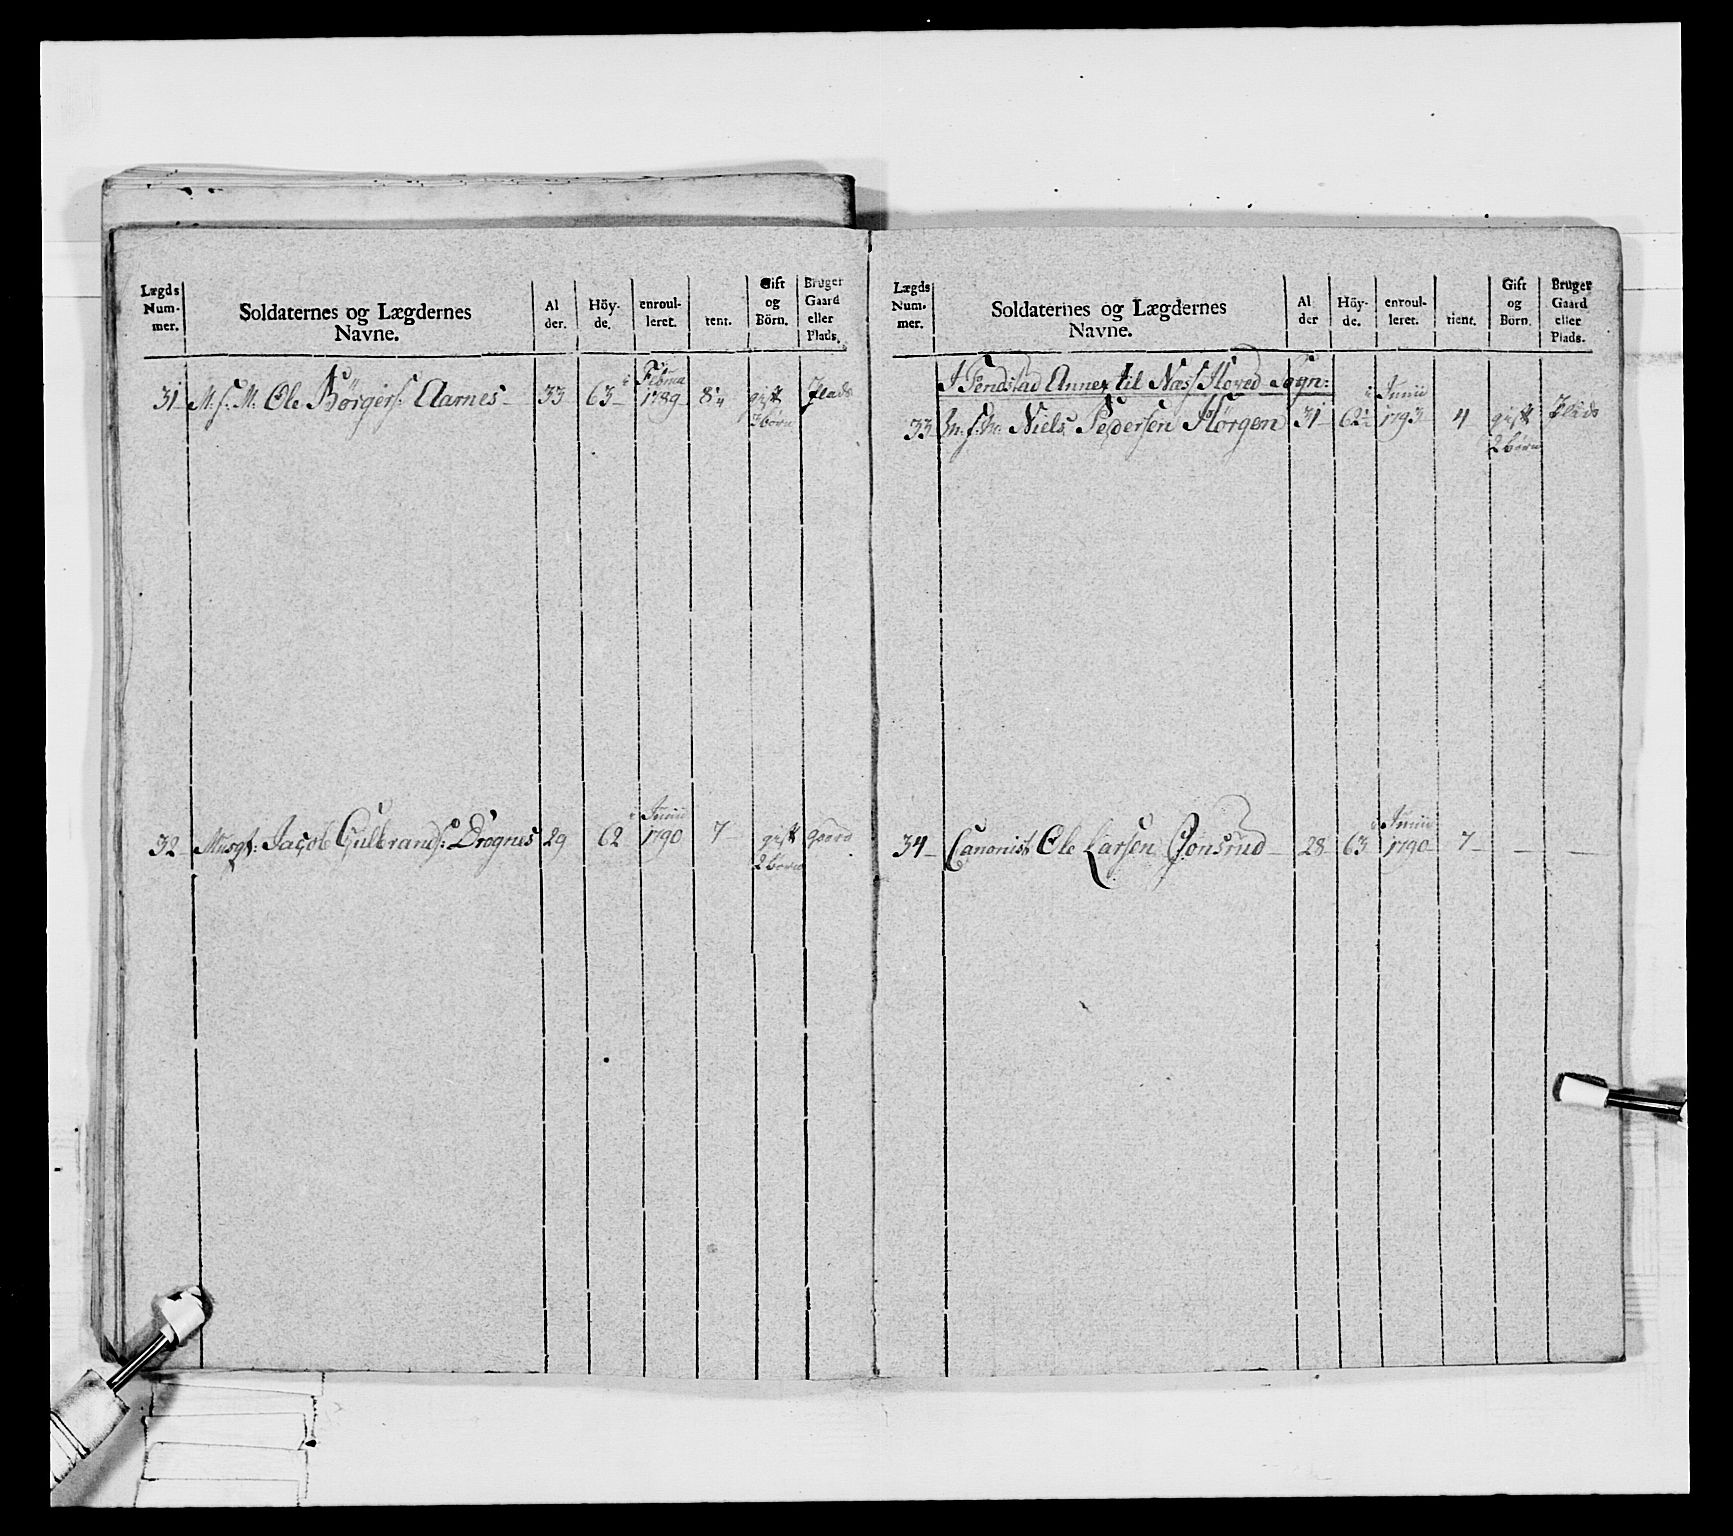 Lægds Num- mer.
Soldaternes og Lægdernes Navne.
Al der.
Höy- de.
enroul- leret.
tent.
Gift og Börn.
Bruger Gaard eller Plads.
31 M: f: M: Ole Börgers: Aarnes 33 63 1789 8 gift Plads
3 börn
32 Musqt: Jacob Gulbrands: Drognes 29 62 i Junii 1790 7 gift Gaard
2 börn
Lægds Num- mer.
Soldaternes og Lægdernes Navne.
Al der
Höy- de.
enroul- leret.
tient.
Gift og Börn.
Bruger Gaard eller Plads.
I Fendstad Annex til Næs Hoved Sogn:
33 Niels Pedersen Horgen 31 62½ i Junii 1793 4 gift Plads
2 börn
34 Canonist Ole Larsen Jonsrud 28 63 i Junii 1790 7 — —